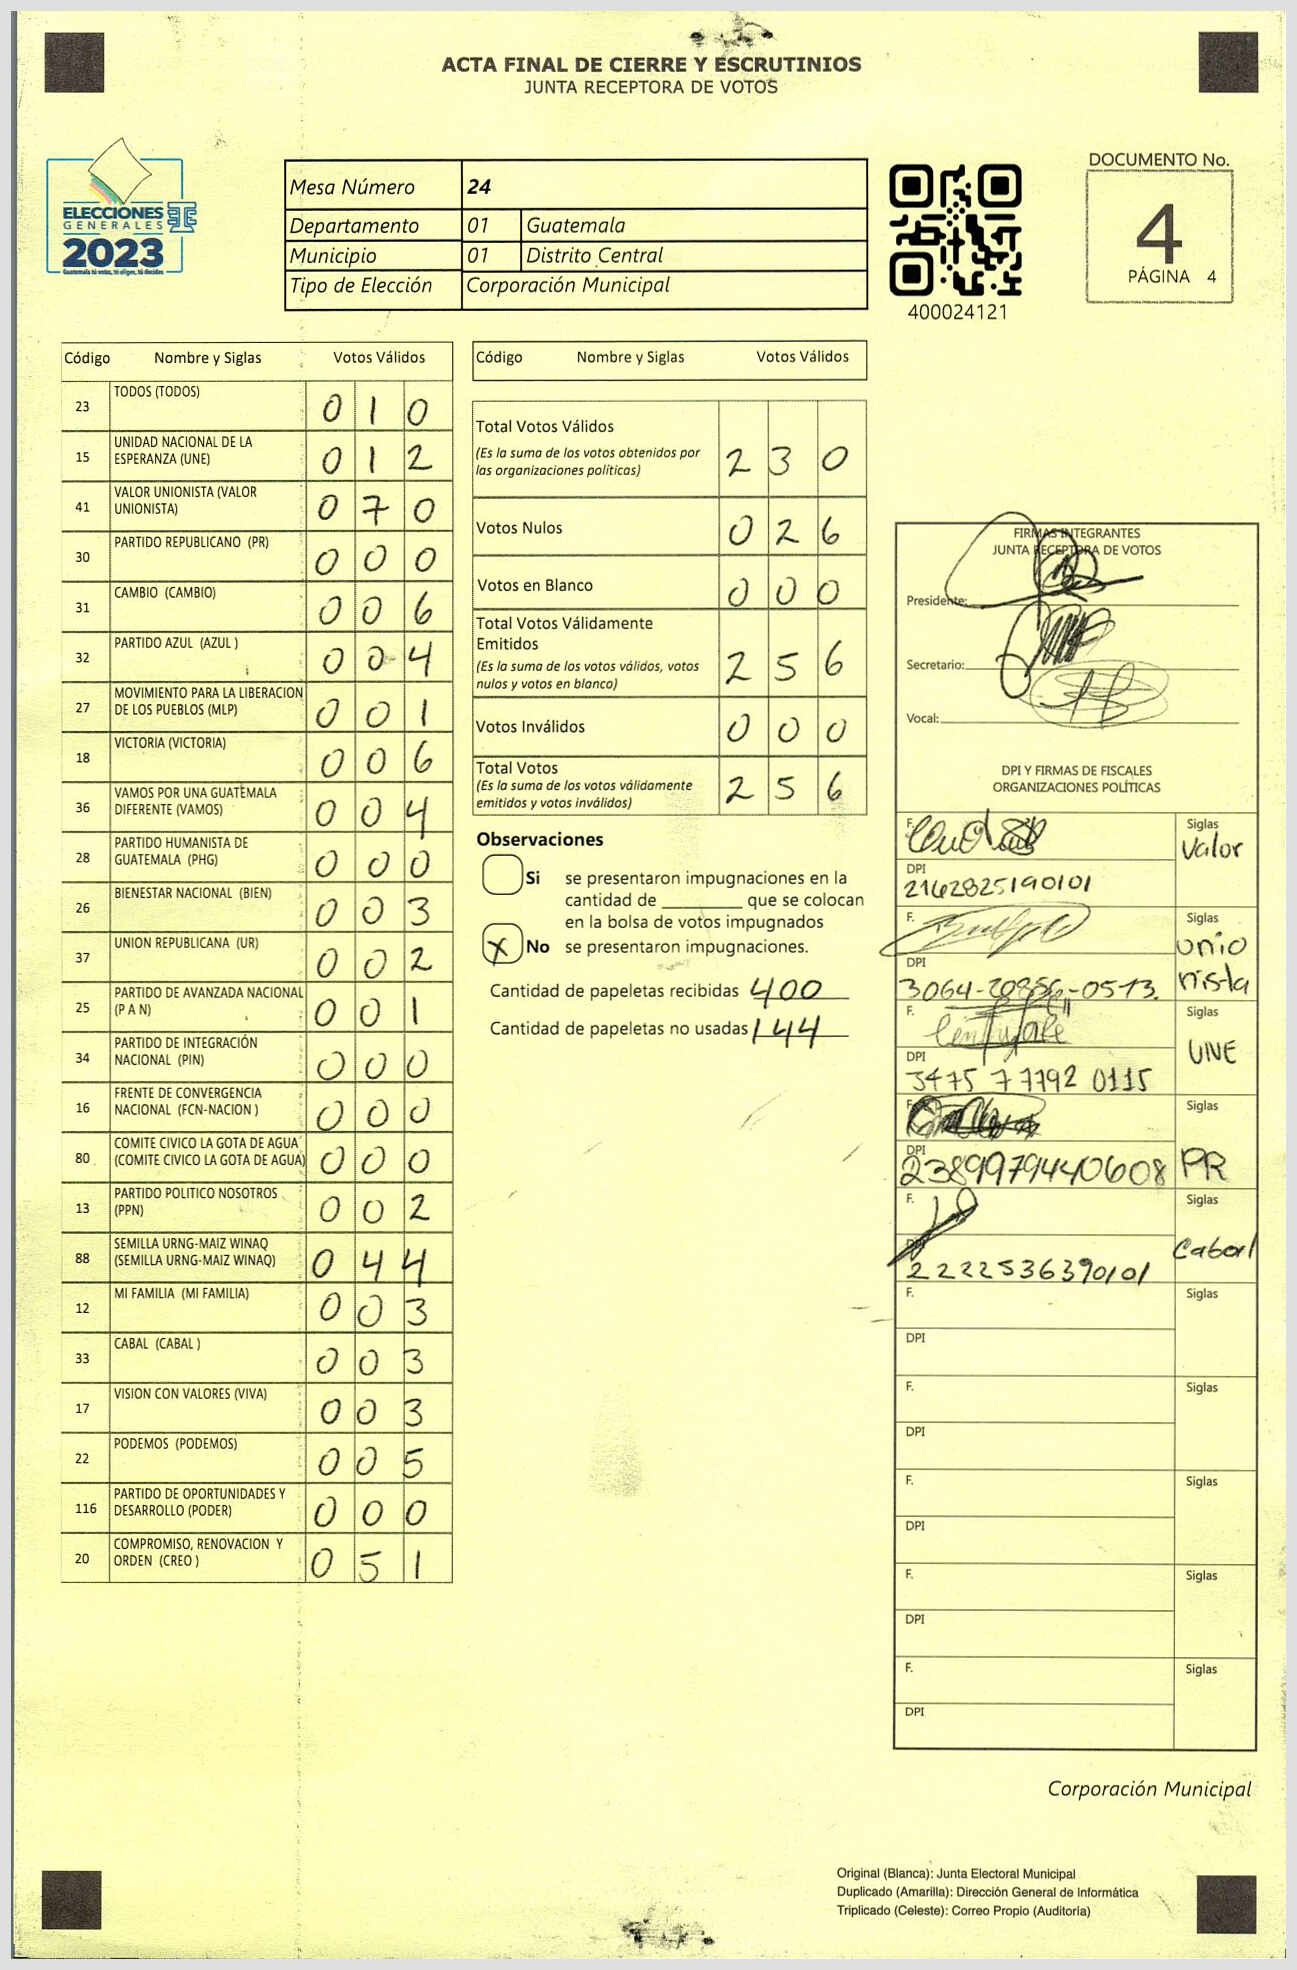 ACTA FINAL DE CIERRE Y ESCRUTINIOS
JUNTA RECEPTORA DE VOTOS
ELECCIONES
GENERALES
2023
Guatemala tú votas, tú eliges, tú decides
Mesa Número 24
Departamento 01 Guatemala
Municipio 01 Distrito Central
Tipo de Elección Corporación Municipal
400024121
DOCUMENTO No.
4
PÁGINA 4
Código Nombre y Siglas Votos Válidos
23 TODOS (TODOS) 0 1 0
15 UNIDAD NACIONAL DE LA
ESPERANZA (UNE) 0 1 2
41 VALOR UNIONISTA (VALOR
UNIONISTA) 0 7 0
30 PARTIDO REPUBLICANO (PR) 0 0 0
31 CAMBIO (CAMBIO) 0 0 6
32 PARTIDO AZUL (AZUL ) 0 0 4
27 MOVIMIENTO PARA LA LIBERACION
DE LOS PUEBLOS (MLP) 0 0 1
18 VICTORIA (VICTORIA) 0 0 6
36 VAMOS POR UNA GUATEMALA
DIFERENTE (VAMOS) 0 0 4
28 PARTIDO HUMANISTA DE
GUATEMALA (PHG) 0 0 0
26 BIENESTAR NACIONAL (BIEN) 0 0 3
37 UNION REPUBLICANA (UR) 0 0 2
25 PARTIDO DE AVANZADA NACIONAL
(P A N) 0 0 1
34 PARTIDO DE INTEGRACIÓN
NACIONAL (PIN) 0 0 0
16 FRENTE DE CONVERGENCIA
NACIONAL (FCN-NACION ) 0 0 0
80 COMITE CIVICO LA GOTA DE AGUA
(COMITE CIVICO LA GOTA DE AGUA) 0 0 0
13 PARTIDO POLITICO NOSOTROS
(PPN) 0 0 2
88 SEMILLA URNG-MAIZ WINAQ
(SEMILLA URNG-MAIZ WINAQ) 0 4 4
12 MI FAMILIA (MI FAMILIA) 0 0 3
33 CABAL (CABAL ) 0 0 3
17 VISION CON VALORES (VIVA) 0 0 3
22 PODEMOS (PODEMOS) 0 0 5
116 PARTIDO DE OPORTUNIDADES Y
DESARROLLO (PODER) 0 0 0
20 COMPROMISO, RENOVACION Y
ORDEN (CREO ) 0 5 1
Código Nombre y Siglas Votos Válidos
Total Votos Válidos
(Es la suma de los votos obtenidos por
las organizaciones políticas) 2 3 0
Votos Nulos 0 2 6
Votos en Blanco 0 0 0
Total Votos Válidamente
Emitidos
(Es la suma de los votos válidos, votos
nulos y votos en blanco) 2 5 6
Votos Inválidos 0 0 0
Total Votos
(Es la suma de los votos válidamente
emitidos y votos inválidos) 2 5 6
Observaciones
Si se presentaron impugnaciones en la
cantidad de ________ que se colocan
en la bolsa de votos impugnados
X No se presentaron impugnaciones.
Cantidad de papeletas recibidas 400
Cantidad de papeletas no usadas 144
FIRMAS INTEGRANTES
JUNTA RECEPTORA DE VOTOS
Presidente:
Secretario:
Vocal:
DPI Y FIRMAS DE FISCALES
ORGANIZACIONES POLÍTICAS
F. Siglas
Valor
DPI
2162825190101
F. Siglas
unio
nista
DPI
3064-20856-0513.
F. Siglas
UNE
DPI
3475 77792 0115
F. Siglas
DPI
2389979440608 PR
F. Siglas
DPI
2222536390101
F. Siglas
DPI
F. Siglas
DPI
F. Siglas
DPI
F. Siglas
DPI
F. Siglas
DPI
Corporación Municipal
Original (Blanca): Junta Electoral Municipal
Duplicado (Amarilla): Dirección General de Informática
Triplicado (Celeste): Correo Propio (Auditoría)